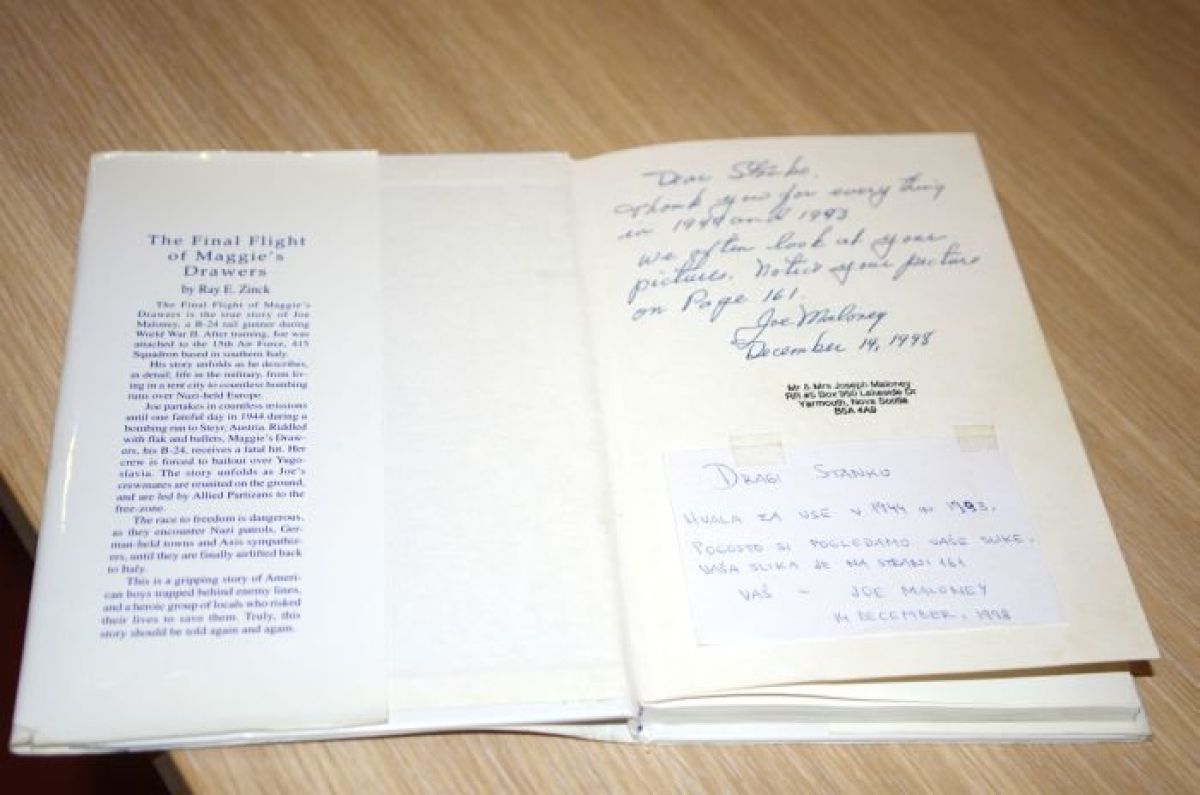 The Final Flight
of Maggie's
Drawers
by Ray E. Zinck
The Final Flight of Maggie's
Drawers is the true story of Joe
Maloney, a B-24 tail gunner during
World War II. After training, Joe was
attached to the 15th Air Force, 415
Squadron based in southern Italy.
His story unfolds as he describes,
in detail, life in the military, from liv-
ing in a tent city to countless bombing
runs over Nazi-held Europe.
Joe partakes in countless missions
until one fateful day in 1944 during a
bombing run to Steyr, Austria. Riddled
with flak and bullets, Maggie's Draw-
ers, his B-24, receives a fatal hit. Her
crew is forced to bailout over Yugo-
slavia. The story unfolds as Joe's
crewmates are reunited on the ground,
and are led by Allied Partizans to the
free-zone.
The race to freedom is dangerous,
as they encounter Nazi patrols, Ger-
man-held towns and Axis sympathiz-
ers, until they are finally airlifted back
to Italy.
This is a gripping story of Ameri-
can boys trapped behind enemy lines,
and a heroic group of locals who risked
their lives to save them. Truly, this
story should be told again and again.
Dear
Thank you for every thing
in 1944 and 1993
We often look at your
pictures. Notice your picture
on Page 161.
Joe Maloney
December 14, 1998
Mr & Mrs Joseph Maloney
RR #5 Box 950 Lakeside Dr
Yarmouth, Nova Scotia
B5A 4A9
DRAGI STANKO
HVALA ZA VSE V 1944 IN 1993.
POGOSTO SI POGLEDAMO VAŠE SLIKE.
VAŠA SLIKA JE NA STRANI 161
VAŠ - JOE MALONEY
14 DECEMBER, 1998